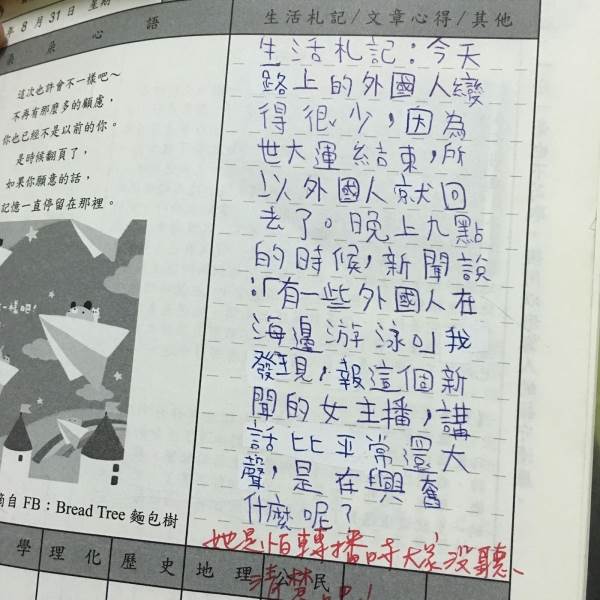 年 8 月 31 日 星期
心 語
這次也許會不一樣吧～
不再有那麼多的顧慮，
你也已經不是以前的你。
是時候翻頁了，
如果你願意的話，
記憶一直停留在那裡。
一樣吧！
摘自 FB：Bread Tree 麵包樹
生活札記/文章心得/其他
生活札記：今天
路上的外國人變
得很少，因為
世大運結束，所
以外國人就回
去了。晚上九點
的時候，新聞說
：「有一些外國人在
海邊游泳。」我
發現，報這個新
聞的女主播，講
話比平常還大
聲，是在興奮
什麼呢？
她是怕轉播時大家沒聽
清楚吧！
學 理 化 歷 史 地 理 公 民